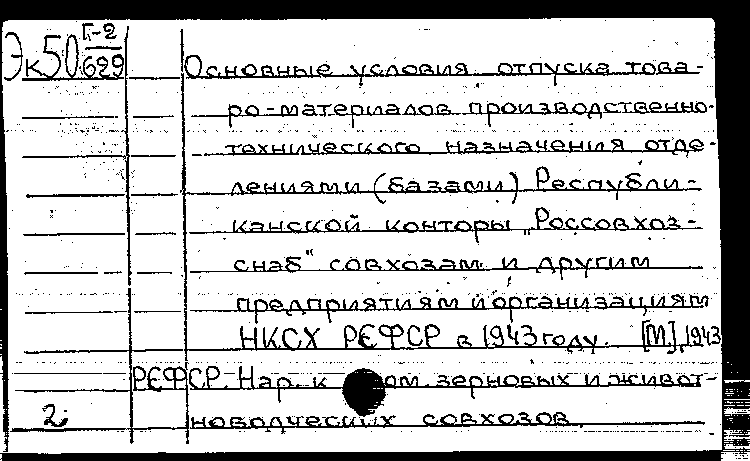 Эк50 Г-2/629
Основные условия отпуска това-
ро-материалов производственно-
технического назначения отде-
лениями (базами) Республи-
канской конторы „Россовхоз-
снаб" совхозам и другим
предприятиям и организациям
НКСХ РСФСР в 1943 году. [М], 1943
РСФСР. Нар. к зерновых и живот-
новодческих совхозов.
2.